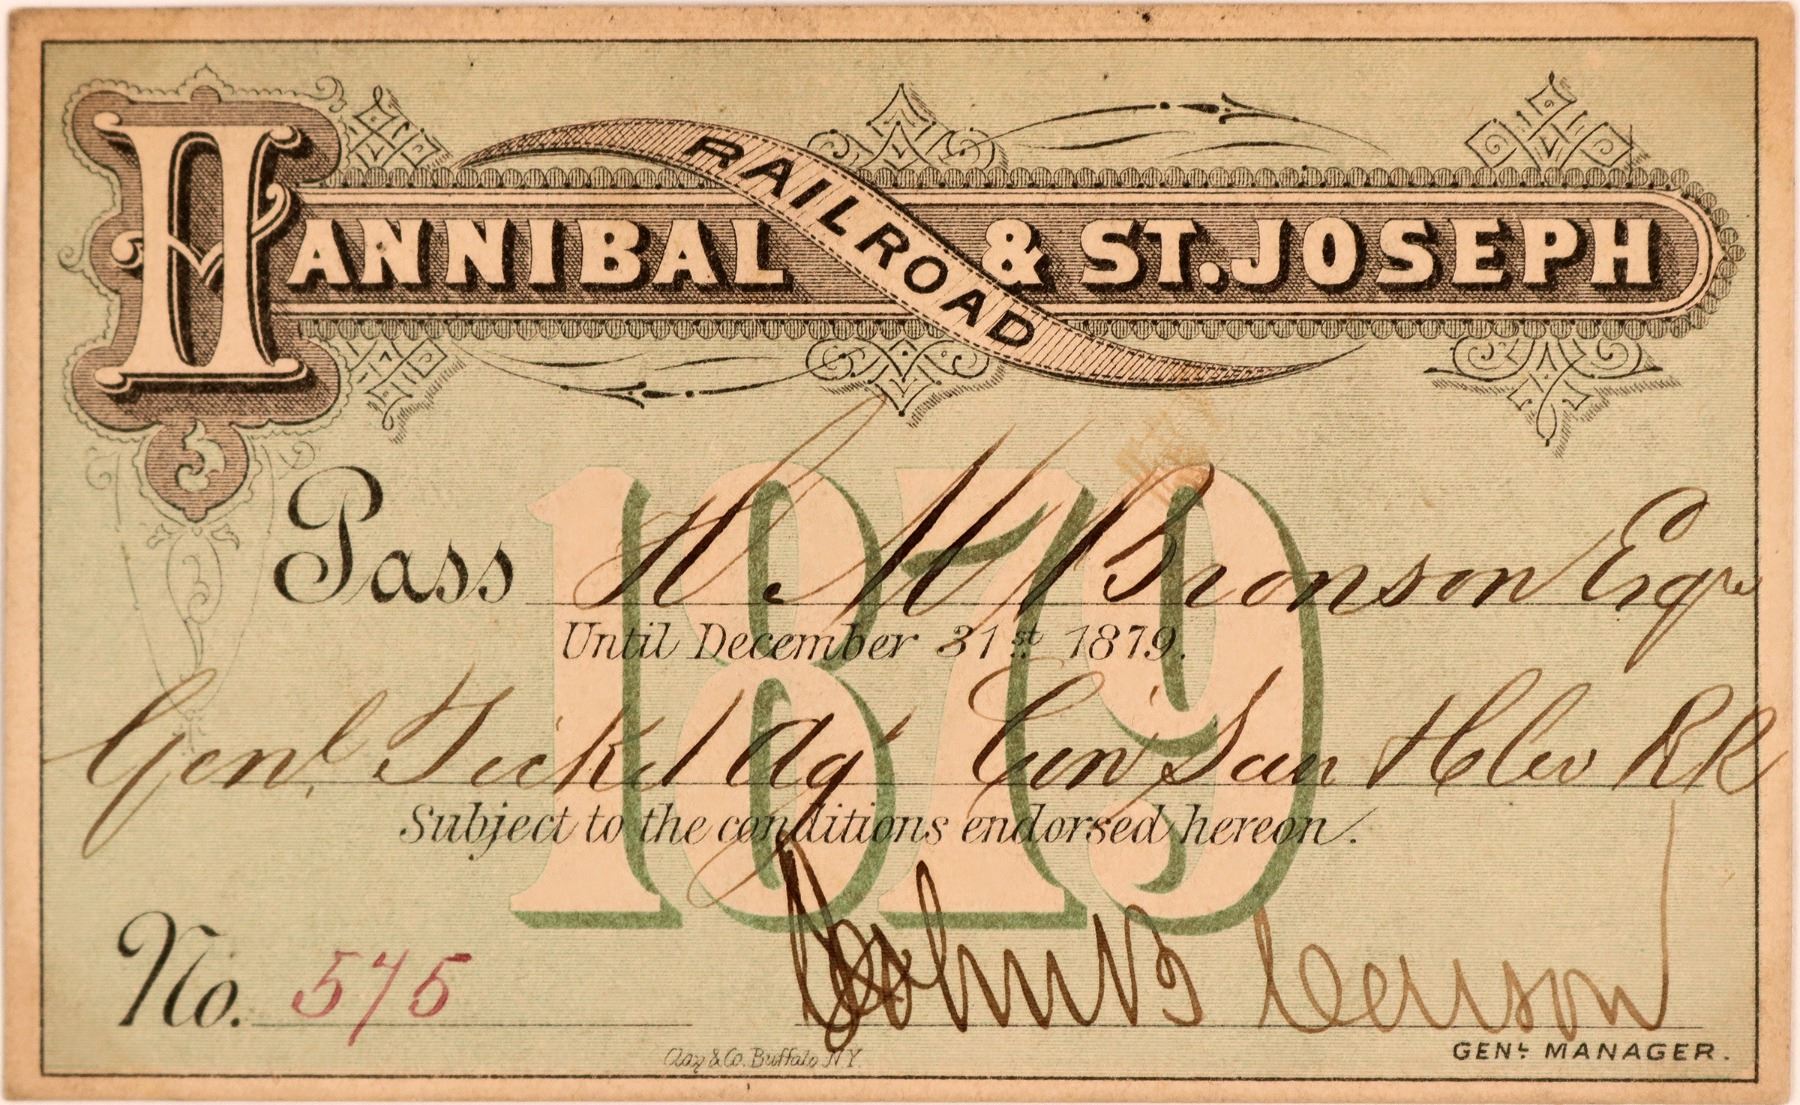 HANNIBAL & ST. JOSEPH
RAILROAD
1879
Pass H M Bronson Esqre
Until December 31st 1879.
Genl. Tickt Ag' Cin' San & Clev RR
Subject to the conditions endorsed hereon.
No. 575
John B Carson
GENL MANAGER.
Clay & Co. Buffalo, N.Y.